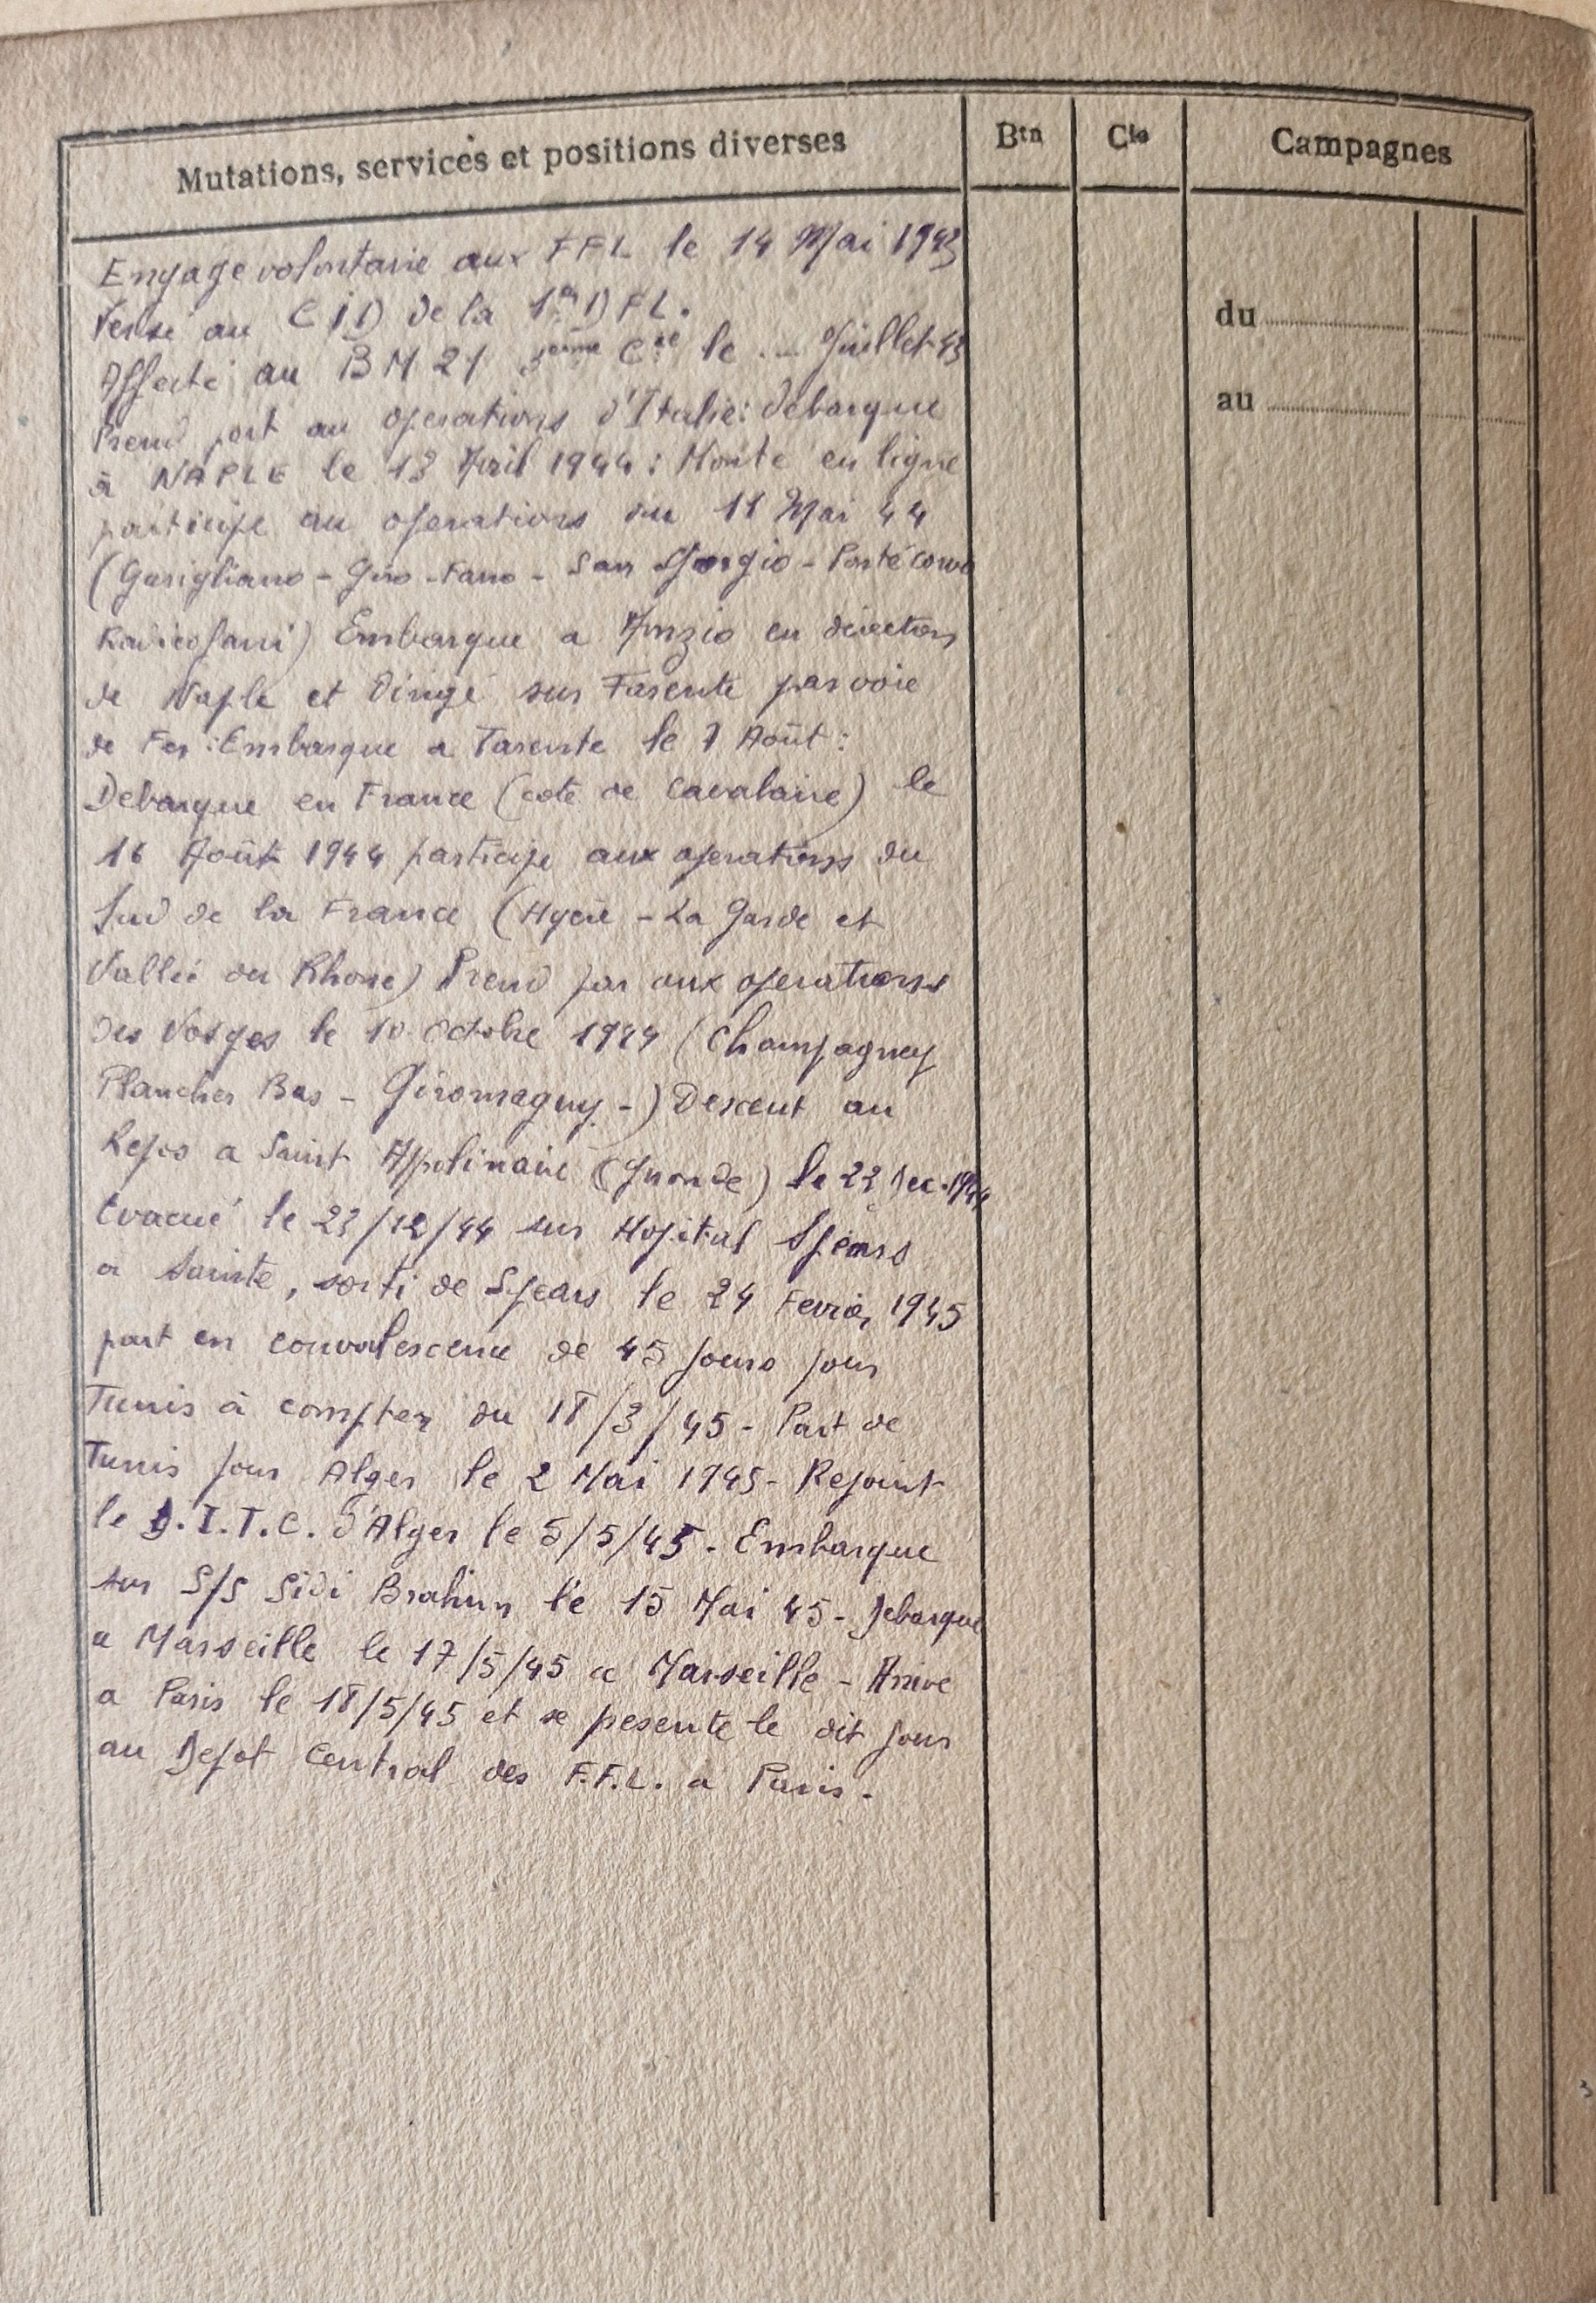 Mutations, services et positions diverses
Btn
Cie
Campagnes
du
au
Engage volontaire aux FFL le 14 Mai 1943
Versé au CID de la 1re DFL.
Affecté au BM 21 3eme Cie le ... Juillet 43
Prend part au operations d'Italie: debarque
à NAPLE le 13 Avril 1944: Monte en ligne
participe au operations du 11 Mai 44
(Garigliano - Giro - Fano - San Giorgio - Ponté corvo
Radicofani) Embarque a Anzio en direction
de Naple et dirigé sur Tarente par voie
de Fer: Embarque a Tarente le 7 Août:
Debarque en France (coté de Cavalaire) le
16 Août 1944 participe aux operations du
Sud de la France (Hyère - La Garde et
Vallée du Rhone) Prend par aux operations
des Vosges le 10 Octobre 1944 (Champagney
Plancher Bas - Giromagny -) Descent au
Repos a Saint Appolinaire (Gironde) le 22 Dec. 1944
Evacué le 23/12/44 sur Hopital Spears
a Sainte, sorti de Spears le 24 Fevrier 1945
part en convalescence de 45 jours pour
Tunis à compter du 18/3/45 - Part de
Tunis pour Alger le 2 Mai 1945 - Rejoint
le D.I.T.C. d'Alger le 5/5/45 - Embarque
sur S/S Sidi Brahim le 15 Mai 45 - Debarque
a Marseille le 17/5/45 a Marseille - Arrive
a Paris le 18/5/45 et se pesente le dit jour
au Depot Central des F.F.L. a Paris.